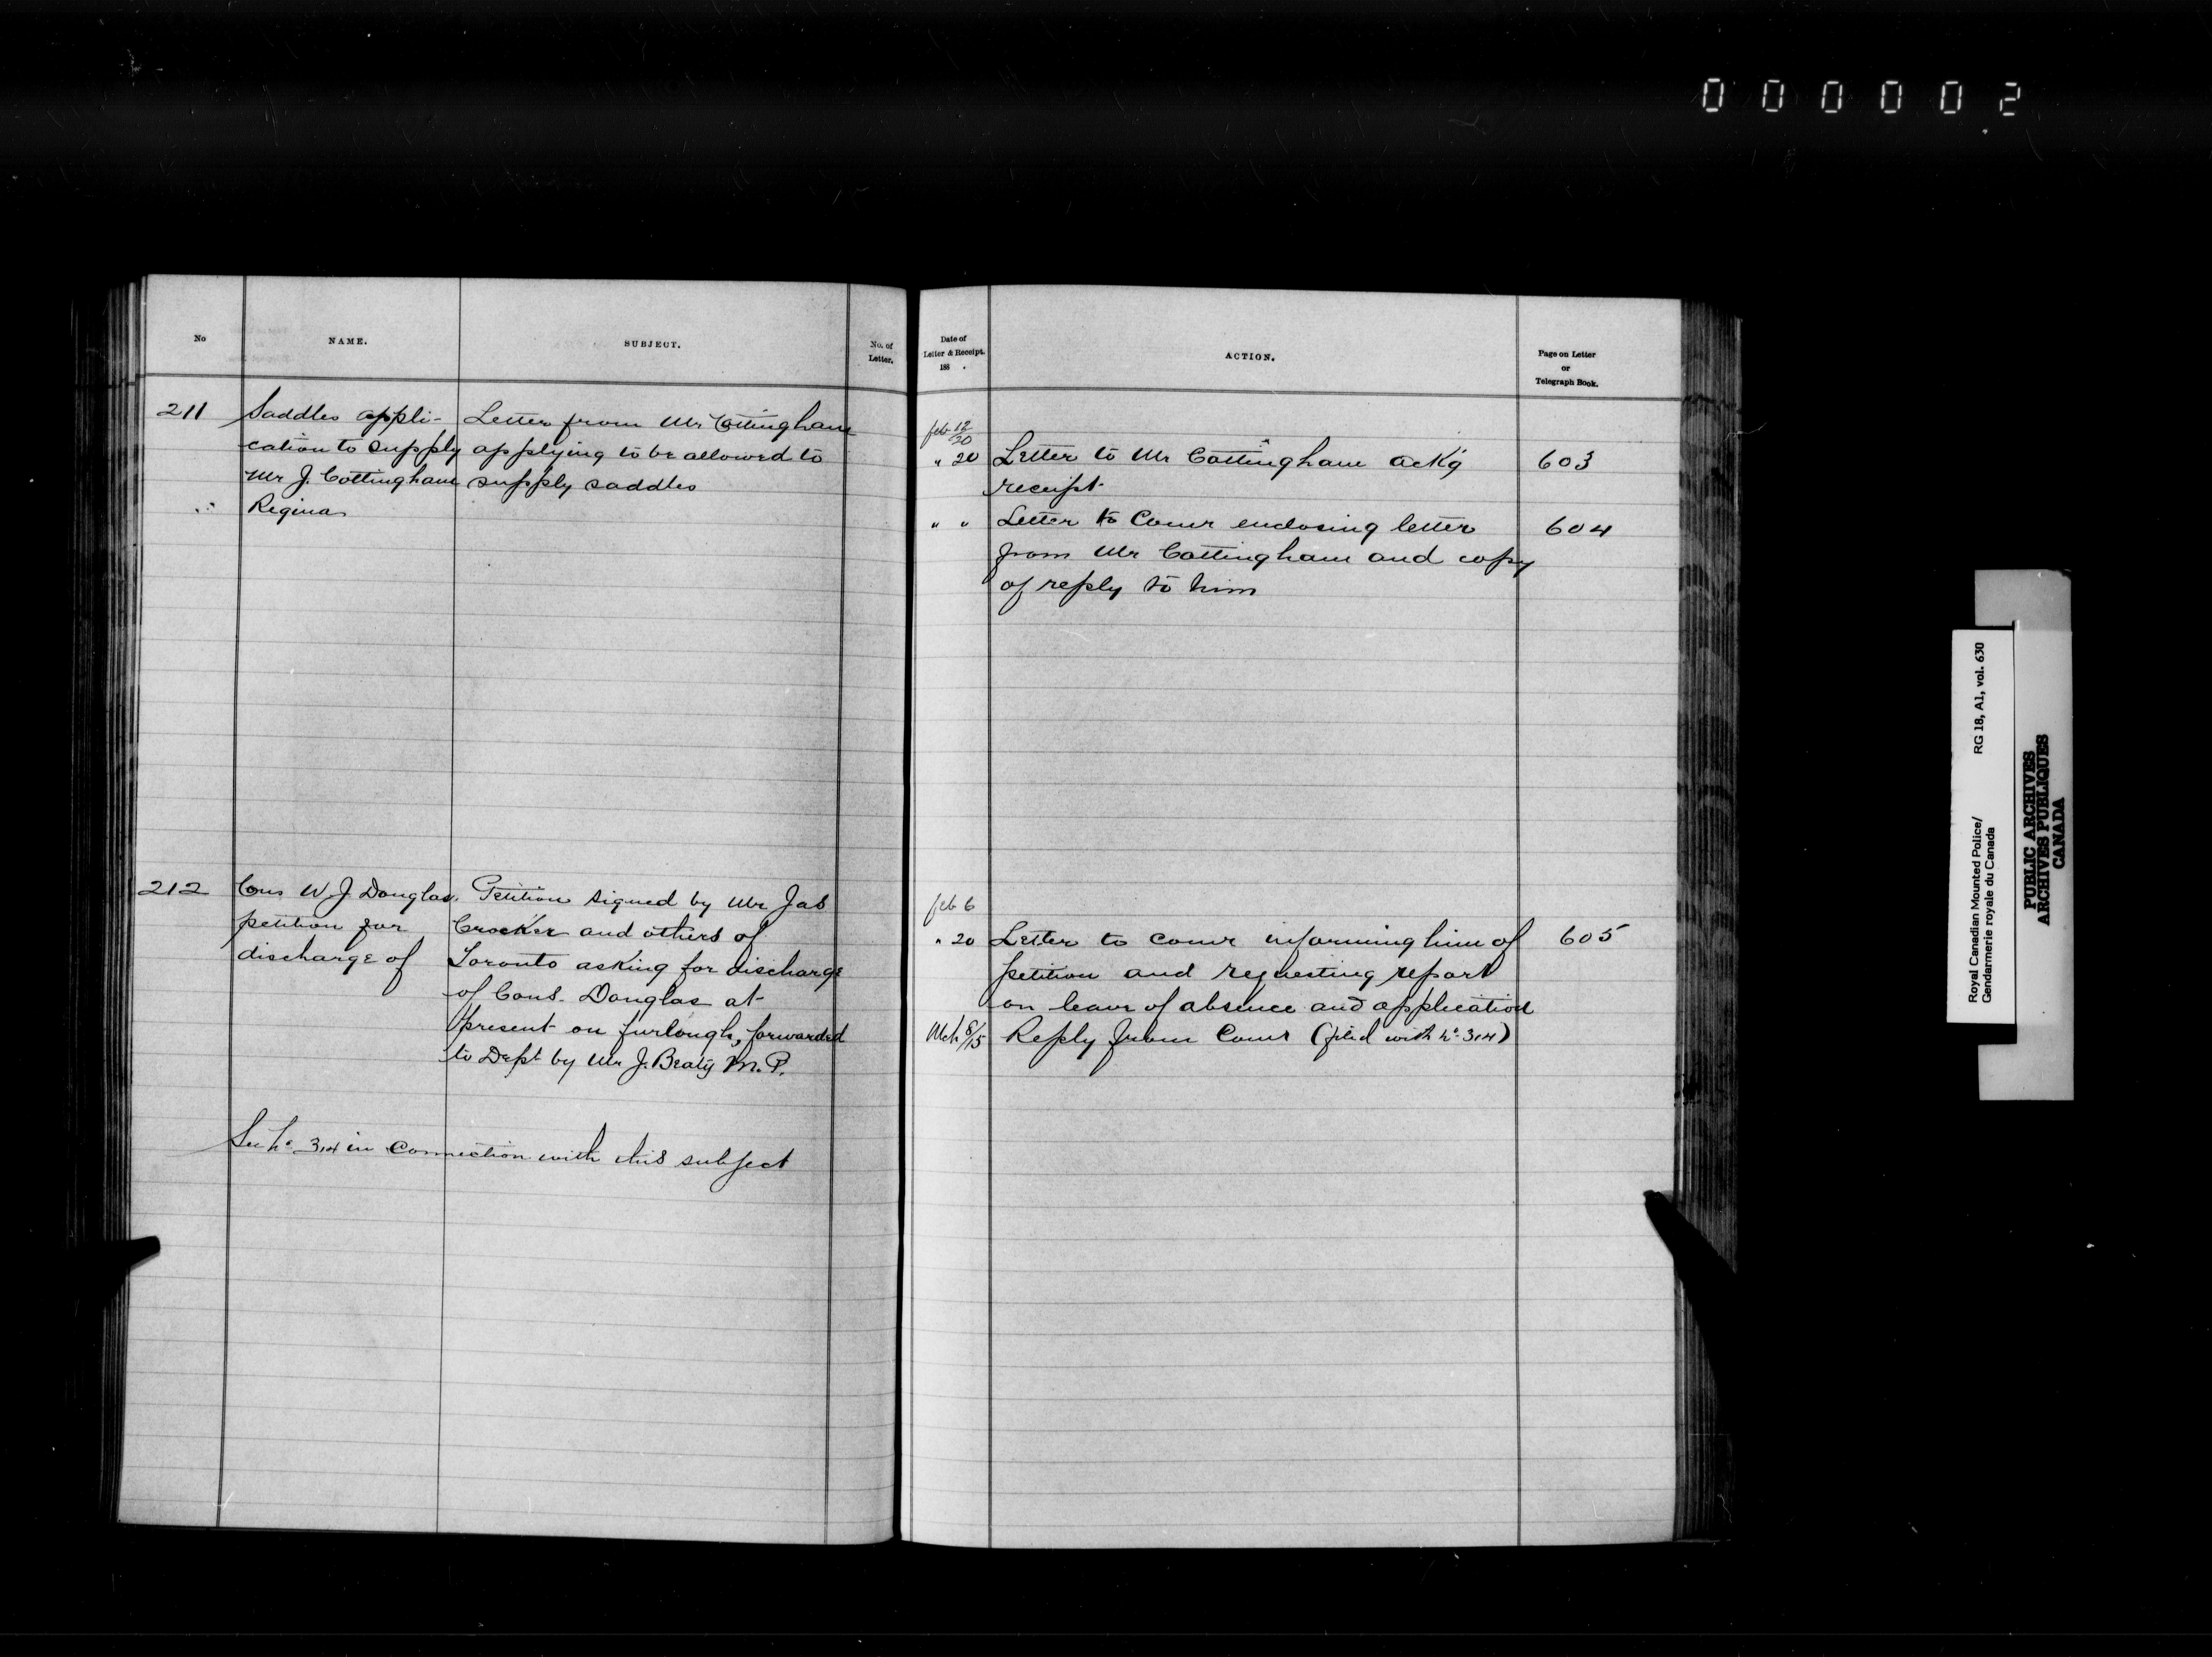 000002
No
NAME.
SUBJECT.
No. of
Letter.
211
Saddles appli-
cation to supply
Mr J. Cottingham
Regina
Letter from Mr Cottingham
applying to be allowed to
supply saddles
212
Cons W. J. Douglas.
petition for
discharge of
Petition signed by Mr Jas
Crocker and others of
Toronto asking for discharge
of Cons. Douglas at
present on furlough, forwarded
to Dept by Mr J. Beaty M.P.
See No 314 in connection with this subject
Date of
Letter & Receipt.
188 .
ACTION.
Page on Letter
or
Telegraph Book.
feb 12/20
" 20 Letter to Mr Cottingham ackg 603
receipt
" " Letter to Comr enclosing letter 604
from Mr Cottingham and copy
of reply to him
feb 6
" 20 Letter to comr informing him of 605
petition and requesting report
on leave of absence and application
Mch 8/15 Reply from Comr (filed with No 314)
Royal Canadian Mounted Police/ RG 18, A1, vol. 630
Gendarmerie royale du Canada
PUBLIC ARCHIVES
ARCHIVES PUBLIQUES
CANADA